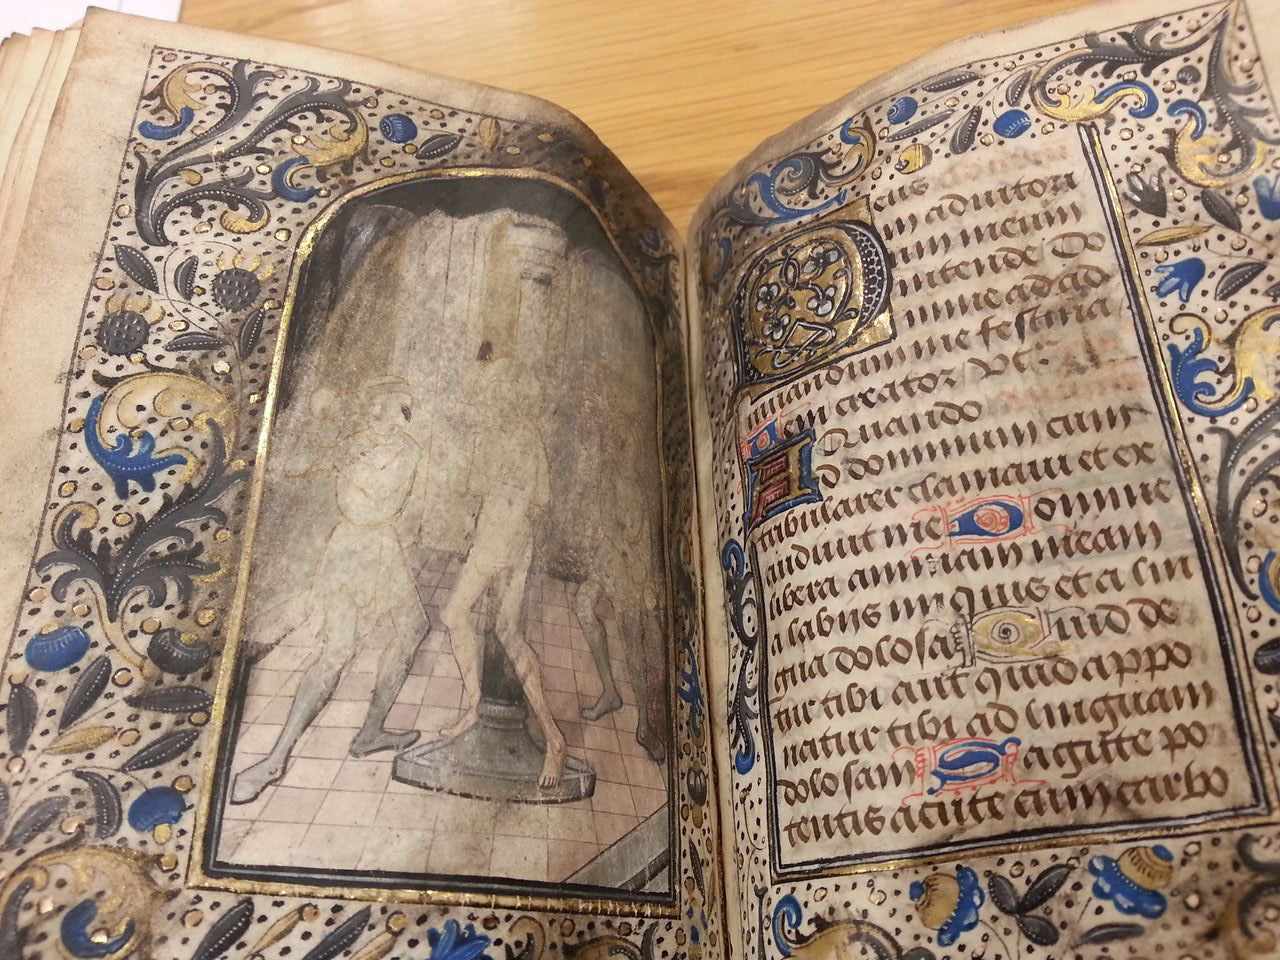 eus
in adiutori
um meum
intende Do
mine ad ad
iuuandum me festina
creator
Quando
Ad dominum cum
tribularer clamaui et ex
audiuit me Domine
libera animam meam
a labijs iniquis et a lin
gua dolosa Quid de
tur tibi aut quid appo
natur tibi ad linguam
dolosam Sagitte po
tentis acute cum carbo